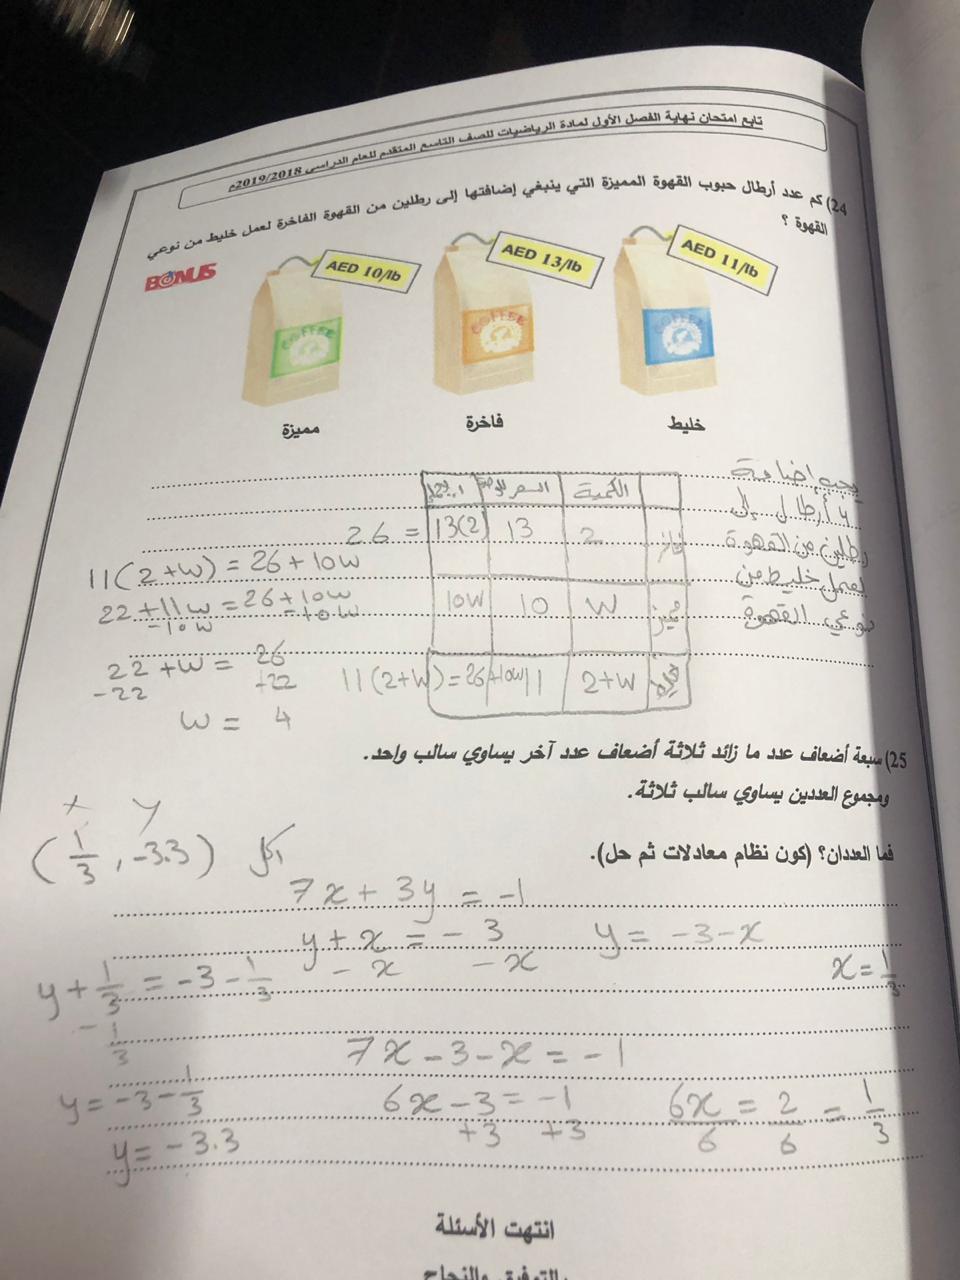 تابع امتحان نهاية الفصل الأول لمادة الرياضيات للصف التاسع المتقدم للعام الدراسي 2019/2018م
24) كم عدد أرطال حبوب القهوة المميزة التي ينبغي إضافتها إلى رطلين من القهوة الفاخرة لعمل خليط من نوعي
القهوة ؟
BONUS
AED 10/lb
AED 13/lb
AED 11/lb
COFFEE
COFFEE
COFFEE
مميزة
فاخرة
خليط
يجب إضافة
4 أرطال إلى
رطلين من القهوة
لعمل خليط من
نوعي القهوة
الكمية
السعر
2 13 13(2) = 26
مميز W 10 10W
2+W 11 11(2+W)=26+10W
11(2+W) = 26+10W
22+11W = 26+10W
-10W -10W
22+W = 26
-22 +22
W = 4
25) سبعة أضعاف عدد ما زائد ثلاثة أضعاف عدد آخر يساوي سالب واحد.
ومجموع العددين يساوي سالب ثلاثة.
فما العددان؟ (كون نظام معادلات ثم حل).
x y
(1/3 , -3.3)
7x + 3y = -1
y + x = -3
-x -x
y = -3-x
x = 1/3
y + 1/3 = -3 - 1/3
-1/3
7x - 3 - x = -1
y = -3 - 1/3
6x - 3 = -1
+3 +3
6x/6 = 2/6 = 1/3
y = -3.3
انتهت الأسئلة
بالتوفيق والنجاح